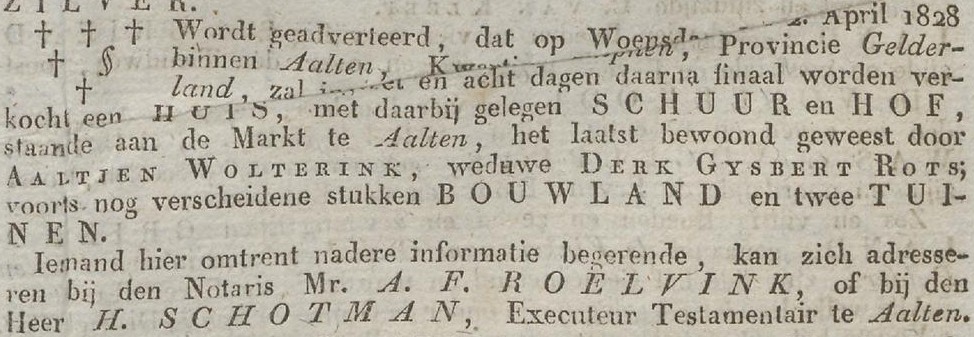 ZILVER.
† † † Wordt geadverteerd, dat op Woensd 2. April 1828
† § binnen Aalten, Kwart Provincie Gelder-
† land, zal en acht dagen daarna finaal worden ver-
kocht een HUIS, met daarbij gelegen SCHUUR en HOF,
staande aan de Markt te Aalten, het laatst bewoond geweest door
AALTJEN WOLTERINK, weduwe DERK GYSBERT ROTS;
voorts nog verscheidene stukken BOUWLAND en twee TUI-
NEN.
Iemand hier omtrent nadere informatie begerende, kan zich adresse-
ren bij den Notaris Mr. A. F. ROELVINK, of bij den
Heer H. SCHOTMAN, Executeur Testamentair te Aalten.